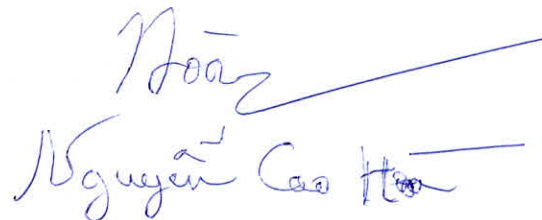 Hoàn
Nguyễn Cao Hoàn